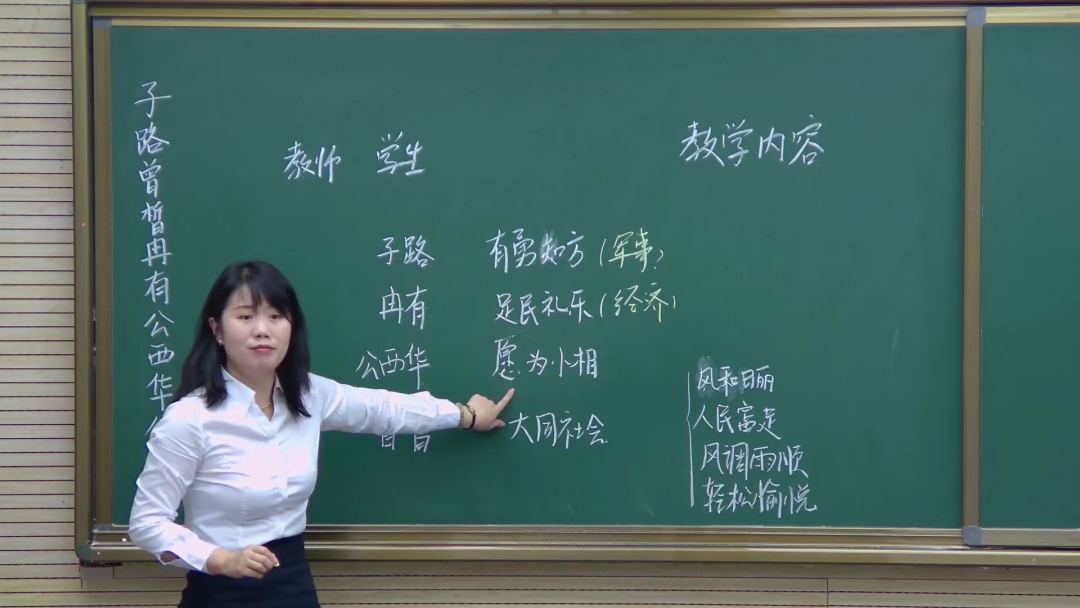 子路曾皙冉有公西华
教师 学生 教学内容
子路 有勇知方(军事)
冉有 足民礼乐(经济)
公西华 愿为小相
大同社会
风和日丽
人民富足
风调雨顺
轻松愉悦